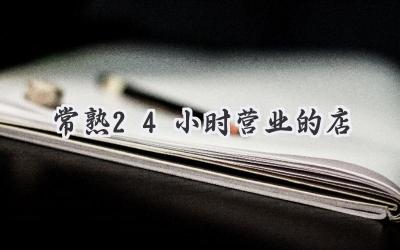 常熟24小时营业的店